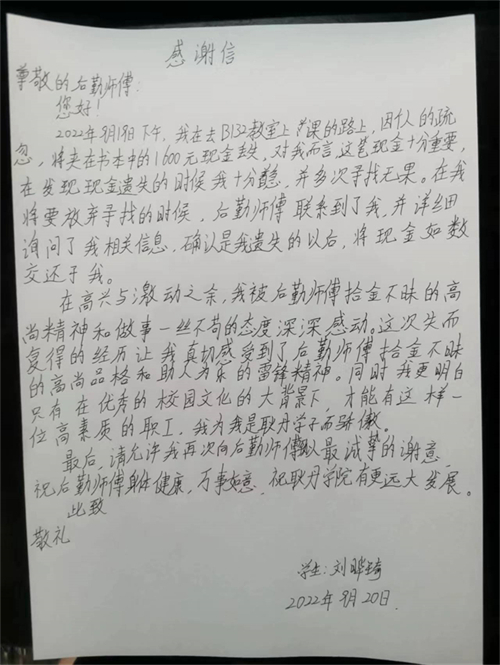 感谢信
尊敬的后勤师傅：
您好！
2022年9月19日下午，我在去B132教室上课的路上，因个人的疏
忽，将夹在书本中的1600元现金丢失，对我而言，这笔现金十分重要，
在发现现金遗失的时候我十分着急，并多次寻找无果。在我
将要放弃寻找的时候，后勤师傅联系到了我，并详细
询问了我相关信息，确认是我遗失的以后，将现金如数
交还于我。
在高兴与激动之余，我被后勤师傅拾金不昧的高
尚精神和做事一丝不苟的态度深深感动。这次失而
复得的经历让我真切感受到了后勤师傅拾金不昧
的高尚品格和助人为乐的雷锋精神。同时我更明白
只有在优秀的校园文化的大背景下，才能有这样一
位高素质的职工，我为我是耿丹学子而骄傲。
最后，请允许我再次向后勤师傅致以最诚挚的谢意
祝后勤师傅身体健康，万事如意，祝耿丹学院有更远大发展。
此致
敬礼
学生：刘晔琦
2022年9月20日.